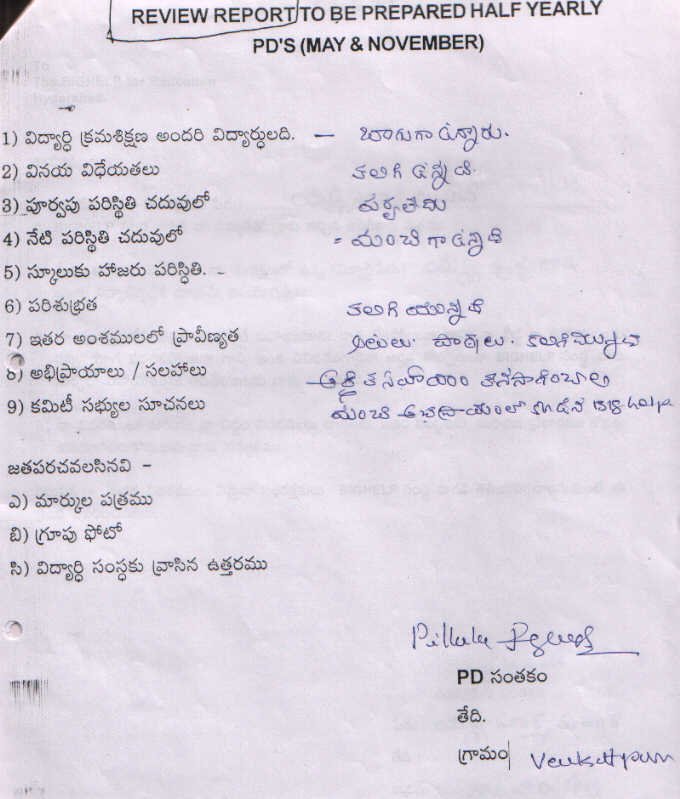 REVIEW REPORT TO BE PREPARED HALF YEARLY
PD'S (MAY & NOVEMBER)
1) విద్యార్ధి క్రమశిక్షణ అందరి విద్యార్ధులది. — బాగుగా ఉన్నారు.
2) వినయ విధేయతలు కలిగి ఉన్నది.
3) పూర్వపు పరిస్థితి చదువులో
4) నేటి పరిస్థితి చదువులో = మంచిగా ఉన్నది
5) స్కూలుకు హాజరు పరిస్ధితి.
6) పరిశుభ్రత కలిగి యున్నది
7) ఇతర అంశములలో ప్రావీణ్యత
8) అభిప్రాయాలు / సలహాలు - ఆర్ధిక సహాయం కొనసాగించాలి
9) కమిటీ సభ్యుల సూచనలు మంచి
జతపరచవలసినవి -
ఎ) మార్కుల పత్రము
బి) గ్రూపు ఫోటో
సి) విద్యార్ధి సంస్ధకు వ్రాసిన ఉత్తరము
PD సంతకం
తేది.
గ్రామం